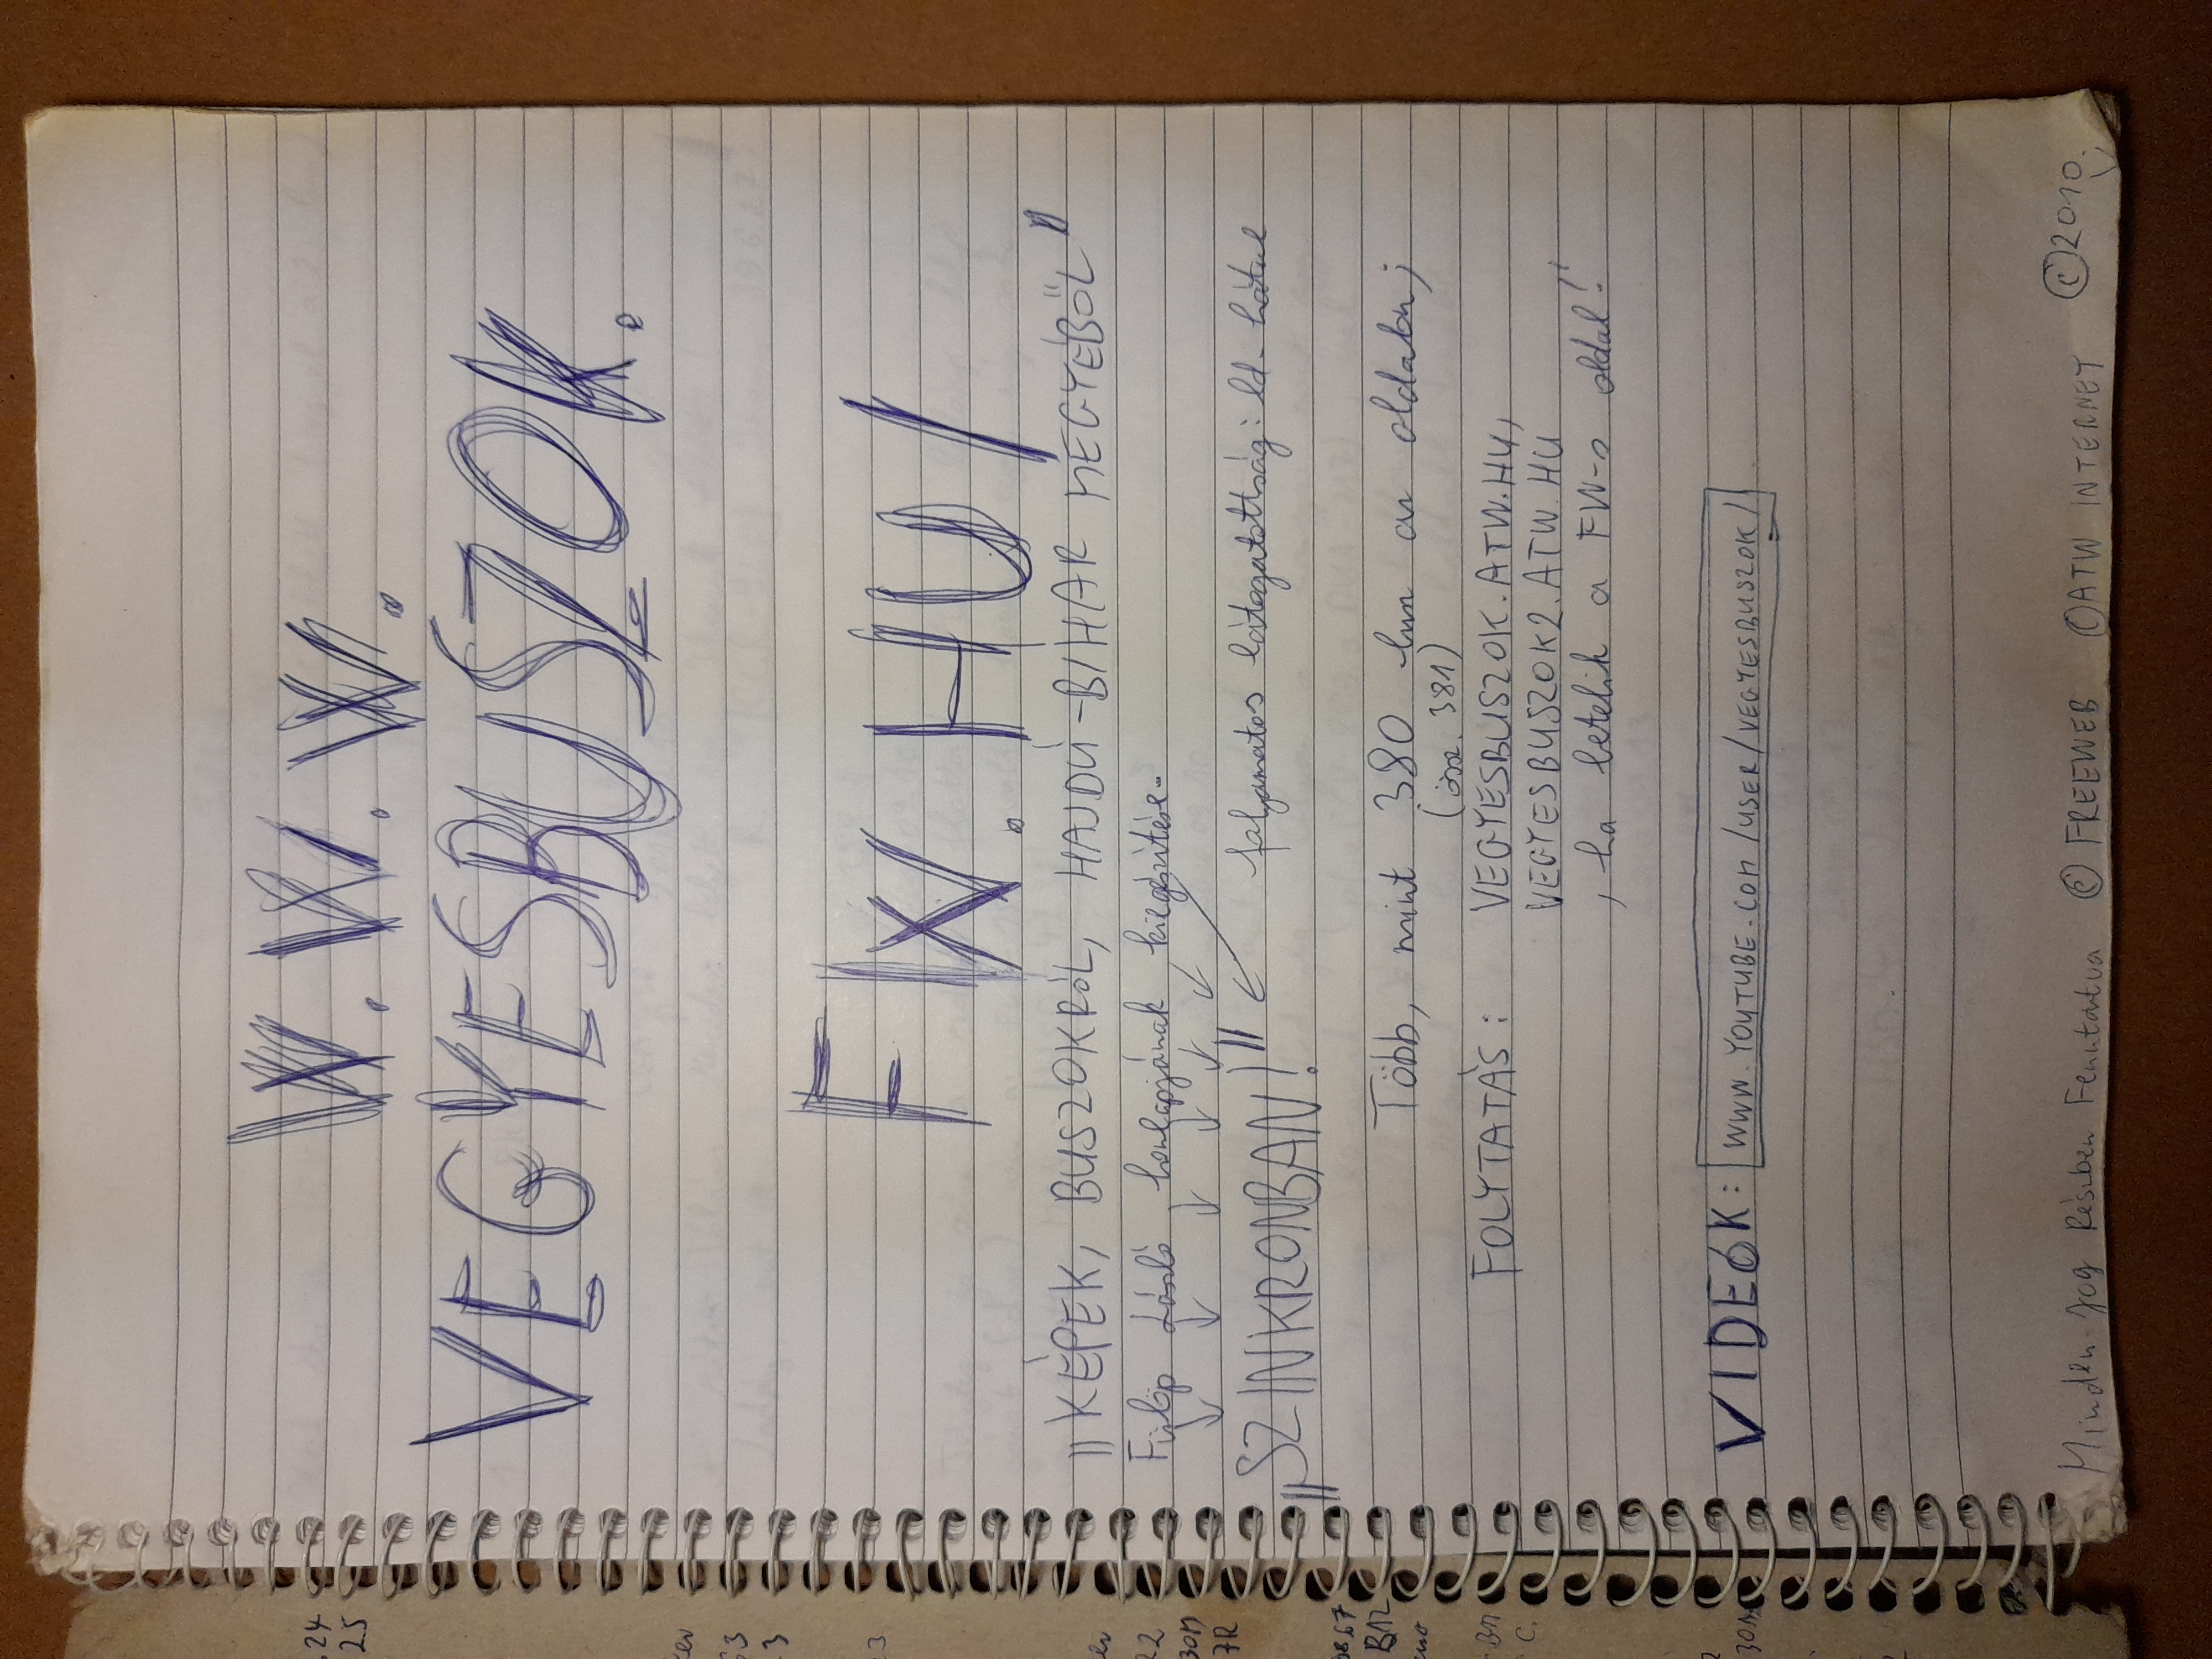 W.W.W.
VEGYESBUSZOK.
FW.HU/
"KÉPEK, BUSZOKRÓL, HAJDÚ-BIHAR MEGYÉBŐL"
Fülöp László honlapjának kiegészítése..
"SZINKRONBAN!" folyamatos látogatottság: ld. hátul
Több, mint 380 km az oldalon;
(össz. 381)
FOLYTATÁS: VEGYESBUSZOK.ATW.HU,
VEGYESBUSZOK2.ATW.HU
, ha betelik a FW-s oldal!
VIDEÓK: WWW.YOUTUBE.COM/USER/VEGYESBUSZOK/
Minden Jog Részben Fenntartva © FREEWEB © ATW INTERNET © 2010.
24
25
63
3
3
22
30M
7R
B12
BM
C.
30M
2